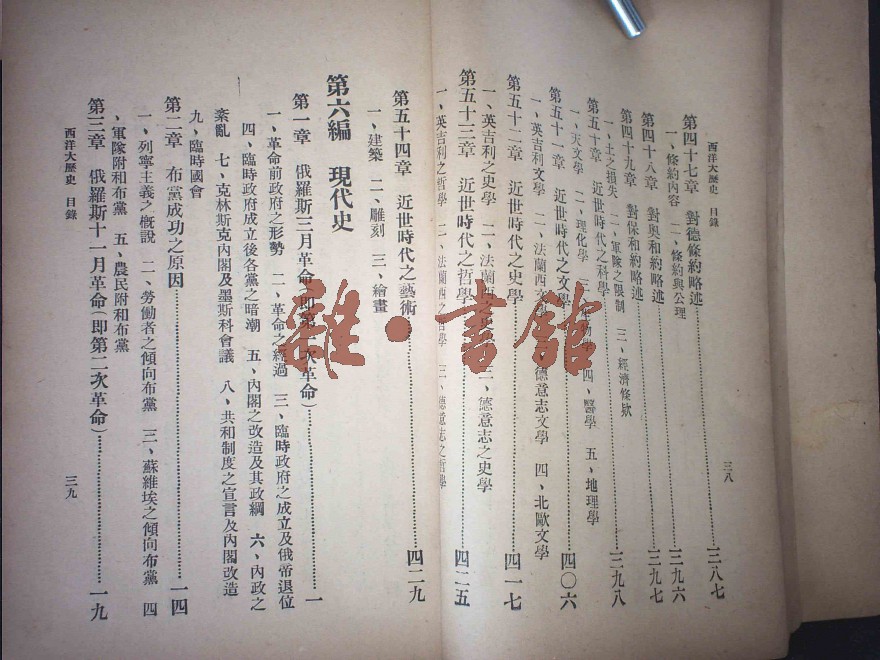 西洋大歷史 目錄
三八
第四十七章 對德條約略述……三八七
一、條約內容 二、條約與公理
第四十八章 對奧和約略述……三九六
第四十九章 對保和約略述……三九七
一、土之損失 二、軍隊之限制 三、經濟條欵
第五十章 近世時代之科學……三九八
一、天文學 二、理化學 四、醫學 五、地理學
第五十一章 近世時代之文學……四〇六
一、英吉利文學 二、法蘭西文學 德意志文學 四、北歐文學
第五十二章 近世時代之史學……四一七
一、英吉利之史學 二、法蘭西之史學 三、德意志之史學
第五十三章 近世時代之哲學……四二五
一、英吉利之哲學 二、法蘭西之哲學 三、德意志之哲學
第五十四章 近世時代之藝術……四二九
一、建築 二、雕刻 三、繪畫
第六編 現代史
第一章 俄羅斯三月革命（即第一次革命）……一
一、革命前政府之形勢 二、革命之經過 三、臨時政府之成立及俄帝退位
四、臨時政府成立後各黨之暗潮 五、內閣之改造及其政綱 六、內政之
紊亂 七、克林斯克內閣及墨斯科會議 八、共和制度之宣言及內閣改造
九、臨時國會
第二章 布黨成功之原因……一四
一、列寧主義之概說 二、勞働者之傾向布黨 三、蘇維埃之傾向布黨 四
、軍隊附和布黨 五、農民附和布黨
第三章 俄羅斯十一月革命（即第二次革命）……一九
西洋大歷史 目錄
三九
雜·書館